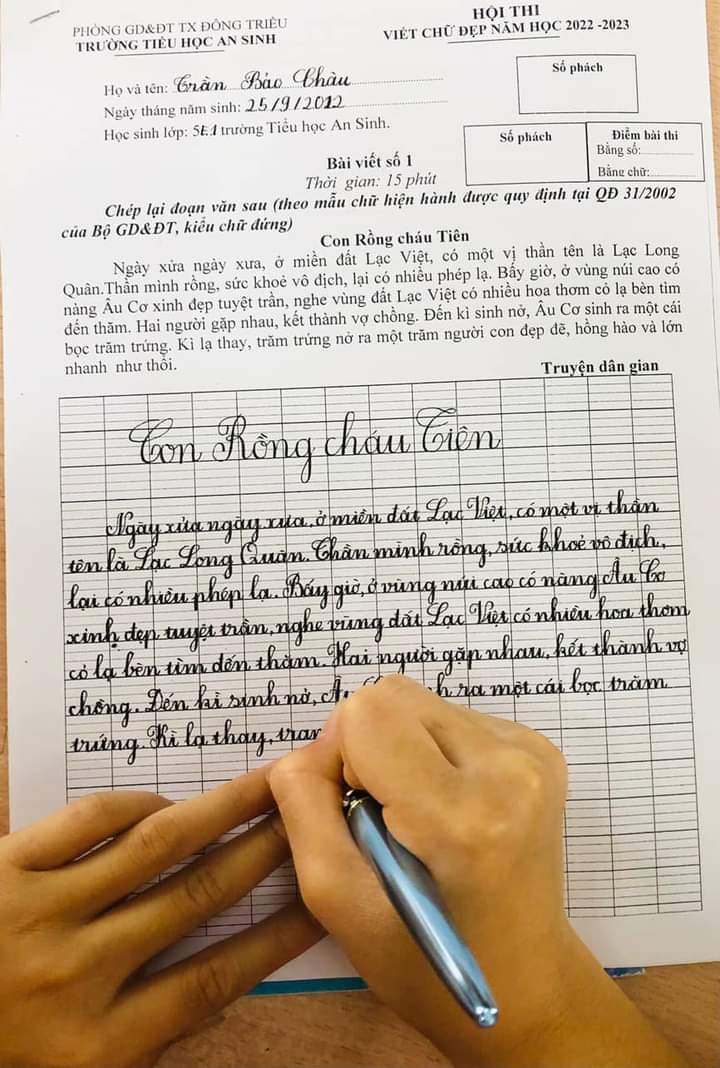 PHÒNG GD&ĐT TX ĐÔNG TRIỀU
TRƯỜNG TIỂU HỌC AN SINH
HỘI THI
VIẾT CHỮ ĐẸP NĂM HỌC 2022 -2023
Họ và tên: Trần Bảo Châu
Ngày tháng năm sinh: 25/9/2012
Học sinh lớp: 5E1 trường Tiểu học An Sinh.
Số phách
Số phách
Điểm bài thi
Bằng số:
Bằng chữ:
Bài viết số 1
Thời gian: 15 phút
Chép lại đoạn văn sau (theo mẫu chữ hiện hành được quy định tại QĐ 31/2002
của Bộ GD&ĐT, kiểu chữ đứng)
Con Rồng cháu Tiên
Ngày xửa ngày xưa, ở miền đất Lạc Việt, có một vị thần tên là Lạc Long
Quân.Thần mình rồng, sức khoẻ vô địch, lại có nhiều phép lạ. Bấy giờ, ở vùng núi cao có
nàng Âu Cơ xinh đẹp tuyệt trần, nghe vùng đất Lạc Việt có nhiều hoa thơm cỏ lạ bèn tìm
đến thăm. Hai người gặp nhau, kết thành vợ chồng. Đến kì sinh nở, Âu Cơ sinh ra một cái
bọc trăm trứng. Kì lạ thay, trăm trứng nở ra một trăm người con đẹp đẽ, hồng hào và lớn
nhanh như thổi.
Truyện dân gian
Con Rồng cháu Tiên
Ngày xửa ngày xưa, ở miền đất Lạc Việt, có một vị thần
tên là Lạc Long Quân. Thần mình rồng, sức khoẻ vô địch,
lại có nhiều phép lạ. Bấy giờ, ở vùng núi cao có nàng Âu Cơ
xinh đẹp tuyệt trần, nghe vùng đất Lạc Việt có nhiều hoa thơm
cỏ lạ bèn tìm đến thăm. Hai người gặp nhau, kết thành vợ
chồng. Đến kì sinh nở, ra một cái bọc trăm
trứng. Kì lạ thay,